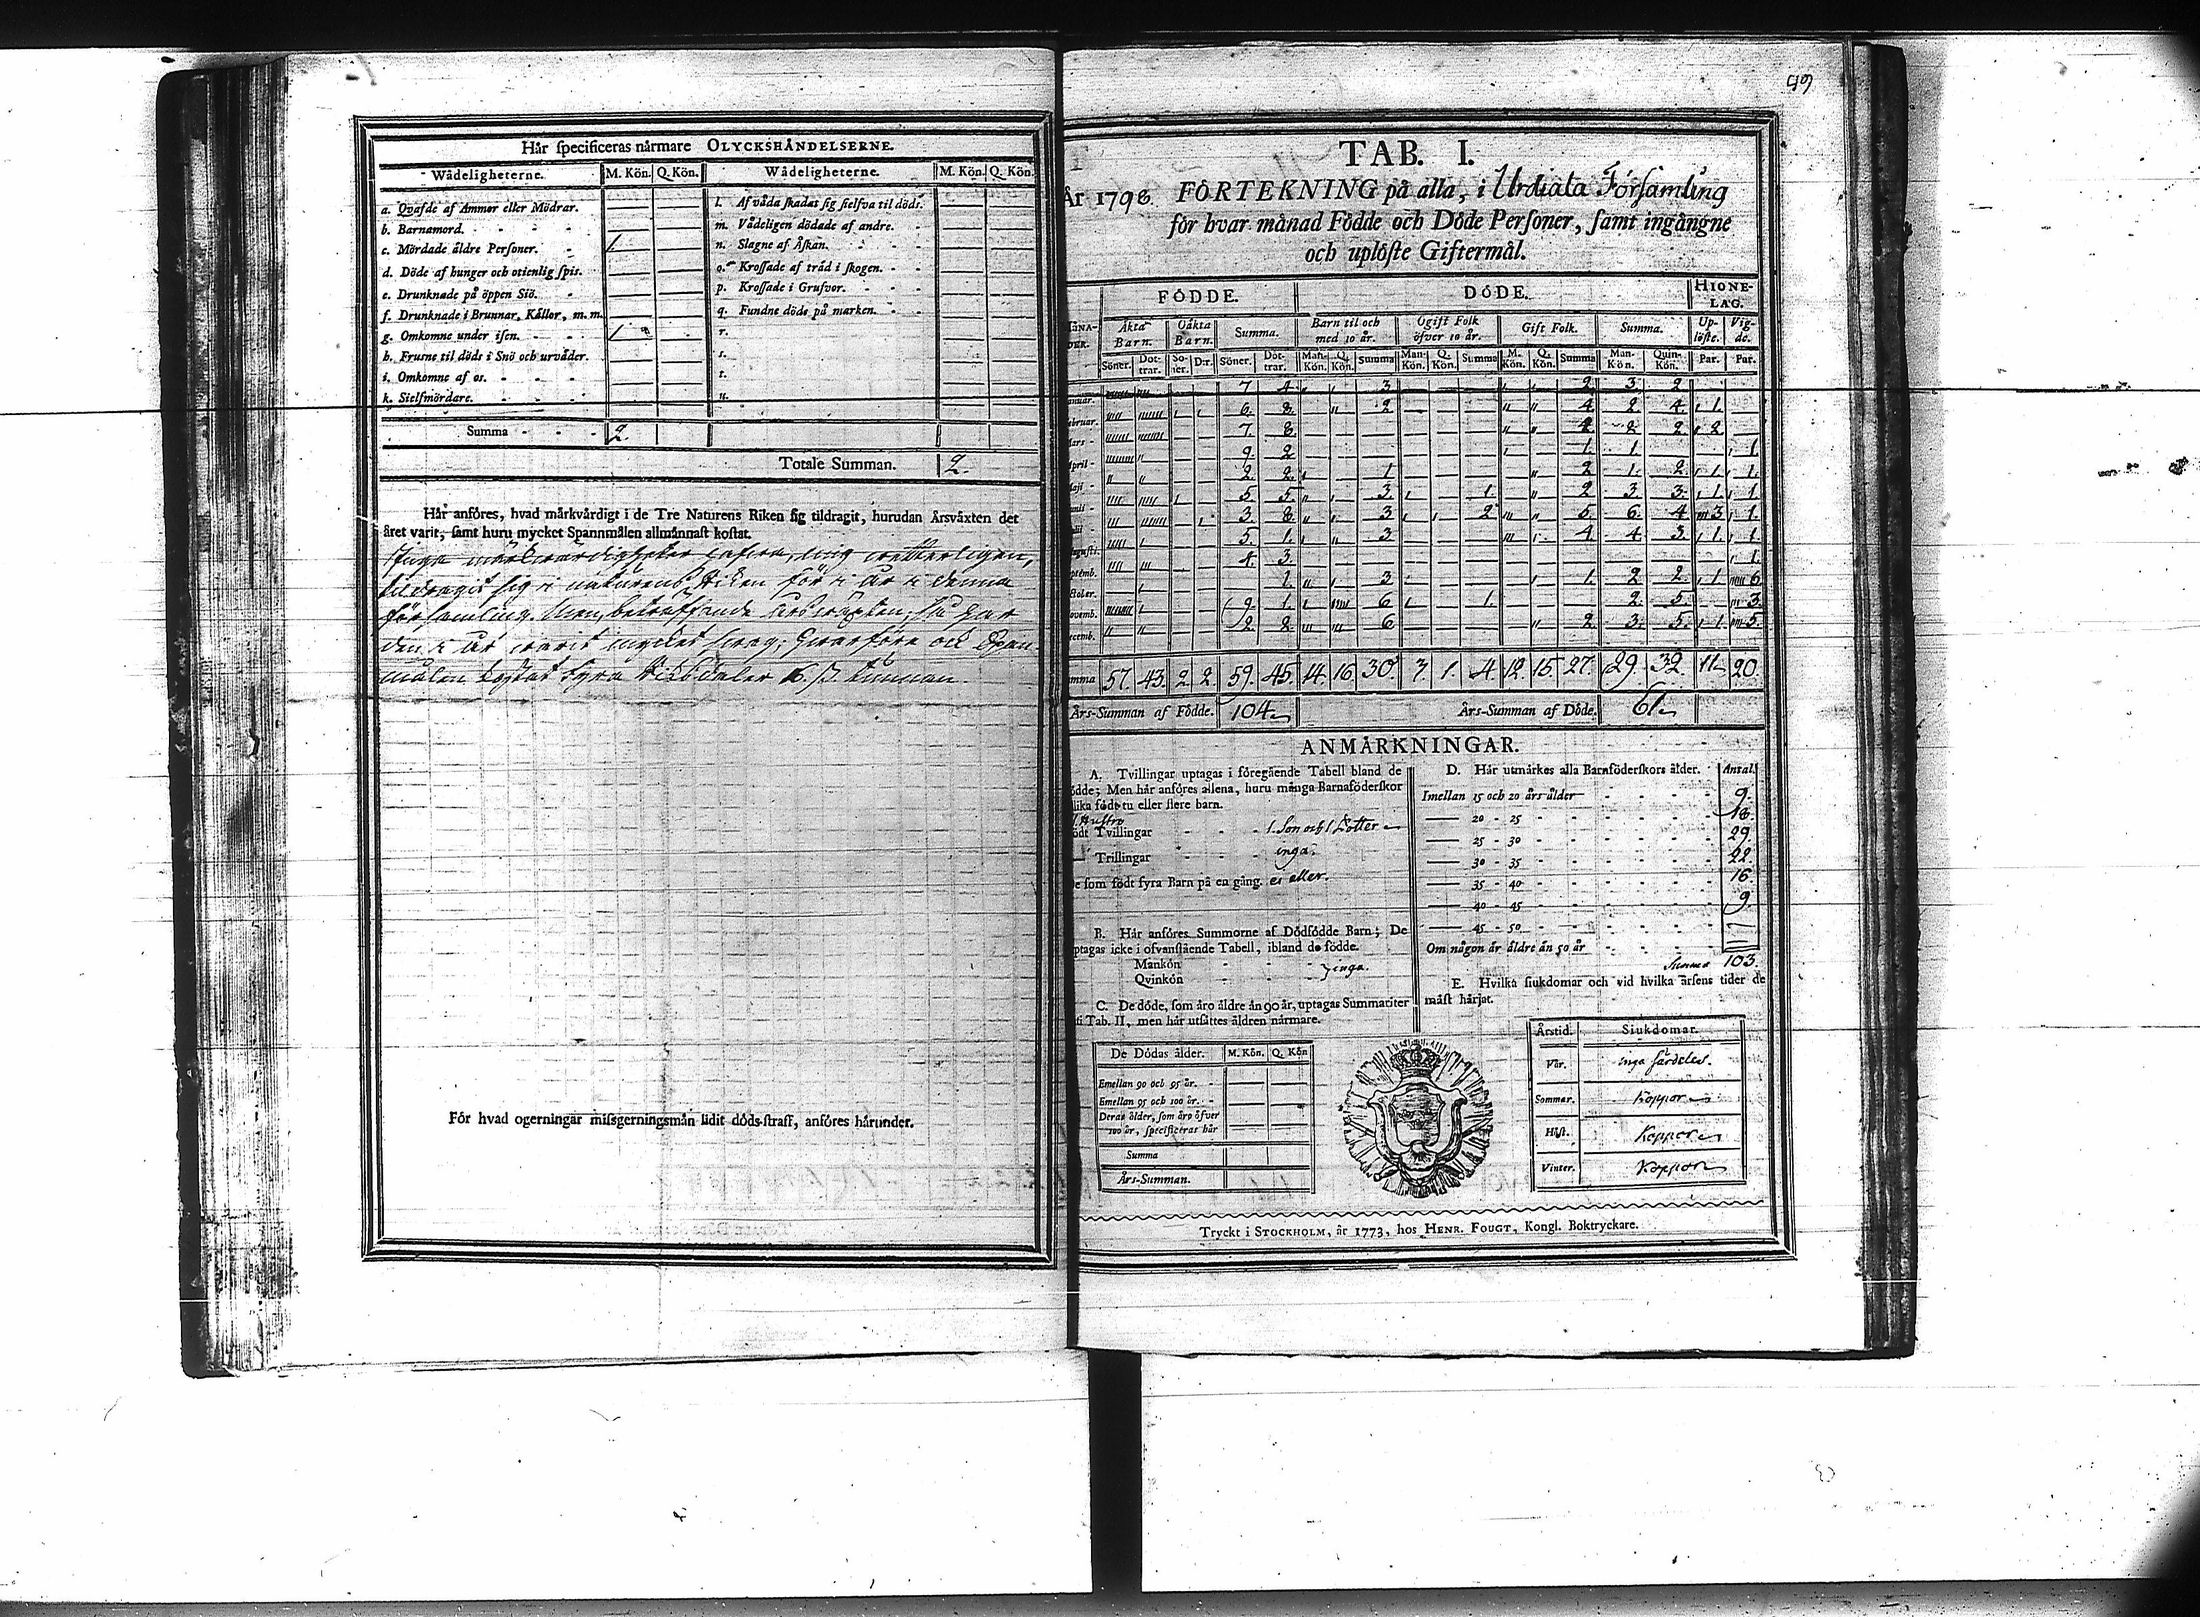 Hår specificeras nårmare OLYCKSHÅNDELSERNE.
Wådeligheterne. M. Kön. Q. Kön. Wådeligheterne. M. Kön. Q. Kön.
a. Qvafde af Ammor eller Mödrar.
b. Barnamord.
c. Mördade åldre Personer. 1.
d. Döde af hunger och otienlig spis.
e. Drunknade på öppen Siö.
f. Drunknade i Brunnar, Kållor, m. m.
g. Omkomne under isen. 1
h. Frusne til döds i Snö och urvåder.
i. Omkomne af os.
k. Sielfmördare.
l. Af våda skadat sig sielfva til döds.
m. Vådeligen dödade af andre.
n. Slagne af Åskan.
o. Krossade af tråd i skogen.
p. Krossade i Grufvor.
q. Fundne döde på marken.
r.
s.
t.
u.
Summa 2.
Totale Summan. 2.
Hår anföres, hvad mårkvårdigt i de Tre Naturens Riken sig tildragit, hurudan Årsvåxten det
året varit, samt huru mycket Spannmålen allmånnast kostat.
tildragit sig i naturens Riken för i år i denna
församling. Men, beträffande årswäxten, så har
den i år warit mycket swag; hwarföre ock Span-
målen kostat fyra Riksdaler 16 ß tunnan.
För hvad ogerningar missgerningsmån lidit döds-straff, anföres hårunder.
99
TAB. I.
År 1798. FÖRTEKNING på alla, i Urdiala Församling
för hvar månad Födde och Döde Personer, samt ingångne
och uplöste Giftermål.
FÖDDE. DÖDE. HIONE-
LAG.
Åkta Barn. Oåkta Barn. Summa. Barn til och med 10 år. Ogift Folk öfver 10 år. Gift Folk. Summa. Up-
löste. Vig-
de.
Söner. Döt-
trar. Sö-
ner. D:r. Söner. Döt-
trar. Man-
Kön. Q. Kön. Summa Man-
Kön. Q. Kön. Summa M. Kön. Q. Kön. Summa Man-
Kön. Quin-
Kön. Par. Par.
7 4 3 2 3 2
6. 8. 2 4 2 4. 1.
7. 8. 2 2 2 2
9. 2 1. 1. 1.
2. 2. 1 2 1. 2. 1. 1.
5. 5. 3. 1. 2 3. 3. 1. 1
3. 8. 3 2 5 6. 4 3. 1
5. 1. 3 4 4 3. 1. 1
4. 3. 1.
1. 3 1. 2 2. 1 6
9. 1. 6 1. 2. 5. 3.
2 2 6 2 3. 5. 1. 5.
57. 43. 2 2. 59. 45. 14. 16. 30. 3. 1. 4. 12. 15. 27. 29. 32. 11. 20.
Års-Summan af Födde. 104. Års-Summan af Döde. 61.
ANMÅRKNINGAR.
A. Tvillingar uptagas i föregående Tabell bland de
födde; Men hår anföres allena, huru många Barnaföderskor
slika födt tu eller flere barn.
1. Hustro
födt Tvillingar 1. Son och 1 Dotter
Trillingar inga.
De som födt fyra Barn på en gång. ei eller.
B. Hår anföres Summorne af Dödfödde Barn; De
uptagas icke i ofvanstående Tabell, ibland de födde.
Mankön
Qvinkön } inga.
C. De döde, som åro åldre ån 90 år, uptagas Summariter
i Tab. II, men hår utsåttes åldren nårmare.
De Dödas ålder. M. Kön. Q. Kön
Emellan 90 och 95 år.
Emellan 95 och 100 år.
Deras ålder, som åro öfver
100 år, specificeras hår
Summa
Års-Summan.
D. Hår utmårkes alla Barnföderskors ålder. Antal.
Imellan 15 och 20 års ålder 9.
20 - 25 18.
25 - 30 29
30 - 35 22
35 - 40 16
40 - 45 9.
45 - 50
Om någon år åldre ån 50 år
Summa 103.
E. Hvilka siukdomar och vid hvilka årsens tider de
måst hårjat.
Årstid. Siukdomar.
Vår. inga särdeles.
Sommar. Koppor
Höst. Koppor
Vinter. Koppor
Tryckt i STOCKHOLM, år 1773, hos HENR. FOUGT, Kongl. Boktryckare.